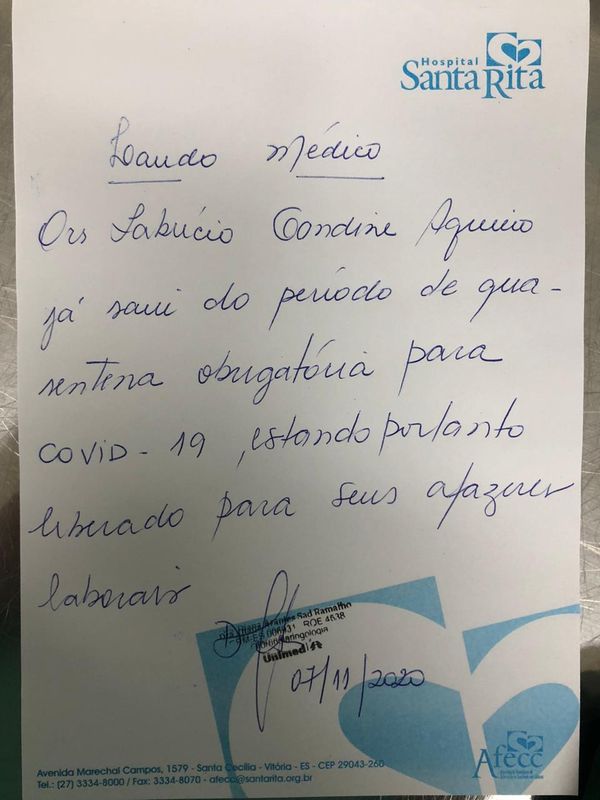 Hospital
Santa Rita
Laudo Médico
Fabrício Gondine
já saiu do período de qua-
rentena obrigatória para
COVID-19, estando portanto
liberado para seus afazeres
laborais
Sad Ramalho
RQE 4638
Unimed
07/11/2020
Afecc
Avenida Marechal Campos, 1579 - Santa Cecília - Vitória - ES - CEP 29043-260
Tel.: (27) 3334-8000 / Fax: 3334-8070 - afecc@santarita.org.br